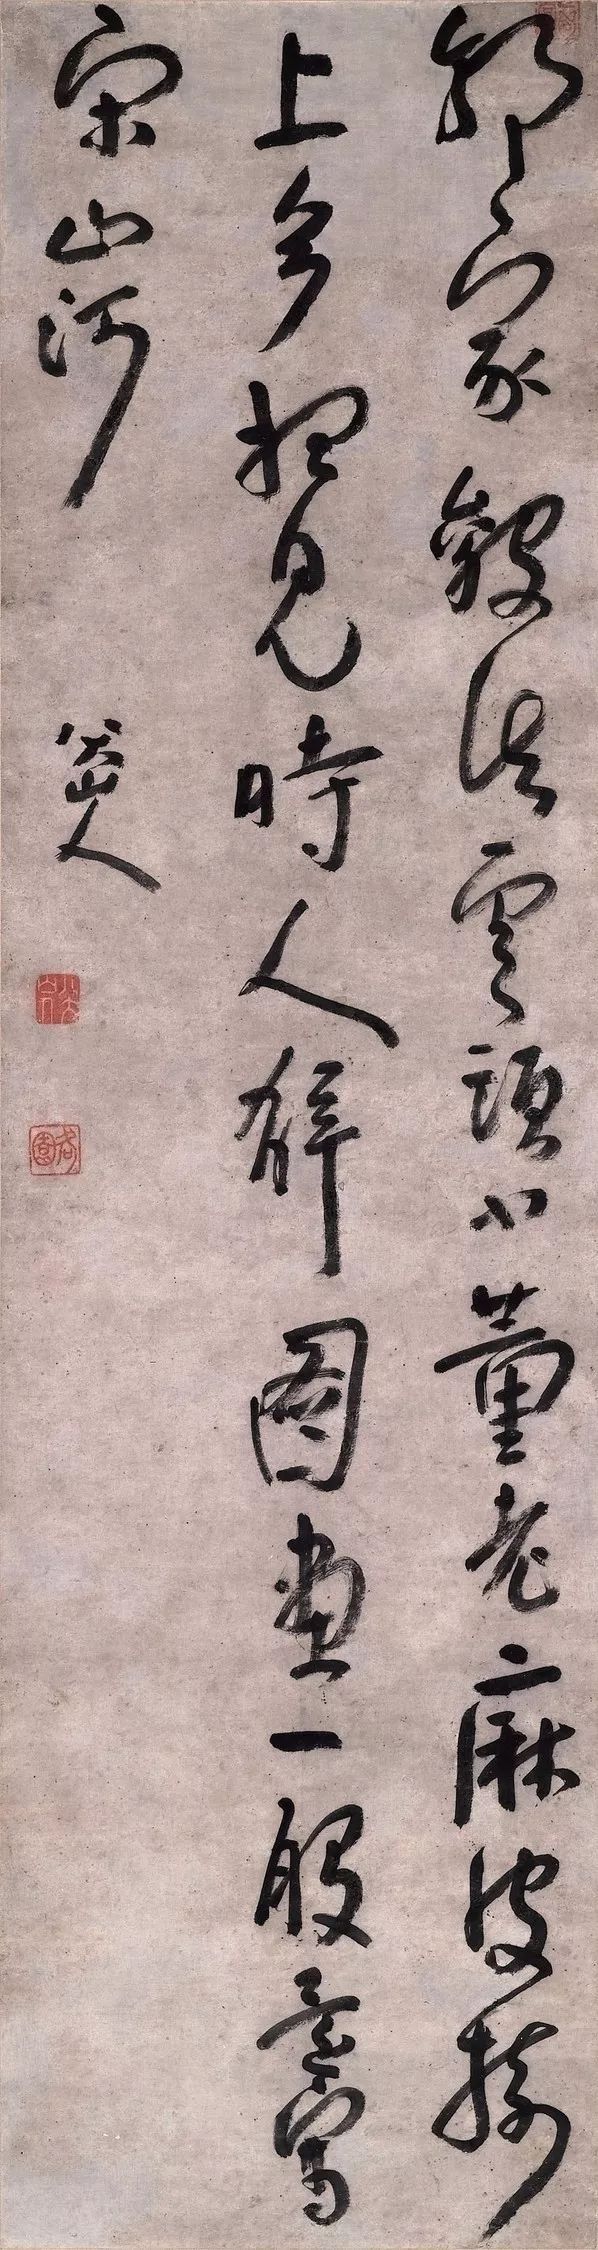 郭家皴法雲頭小董老麻皮樹
上多想見時人解圖畫一般還寫
宋山河
八大山人
何園